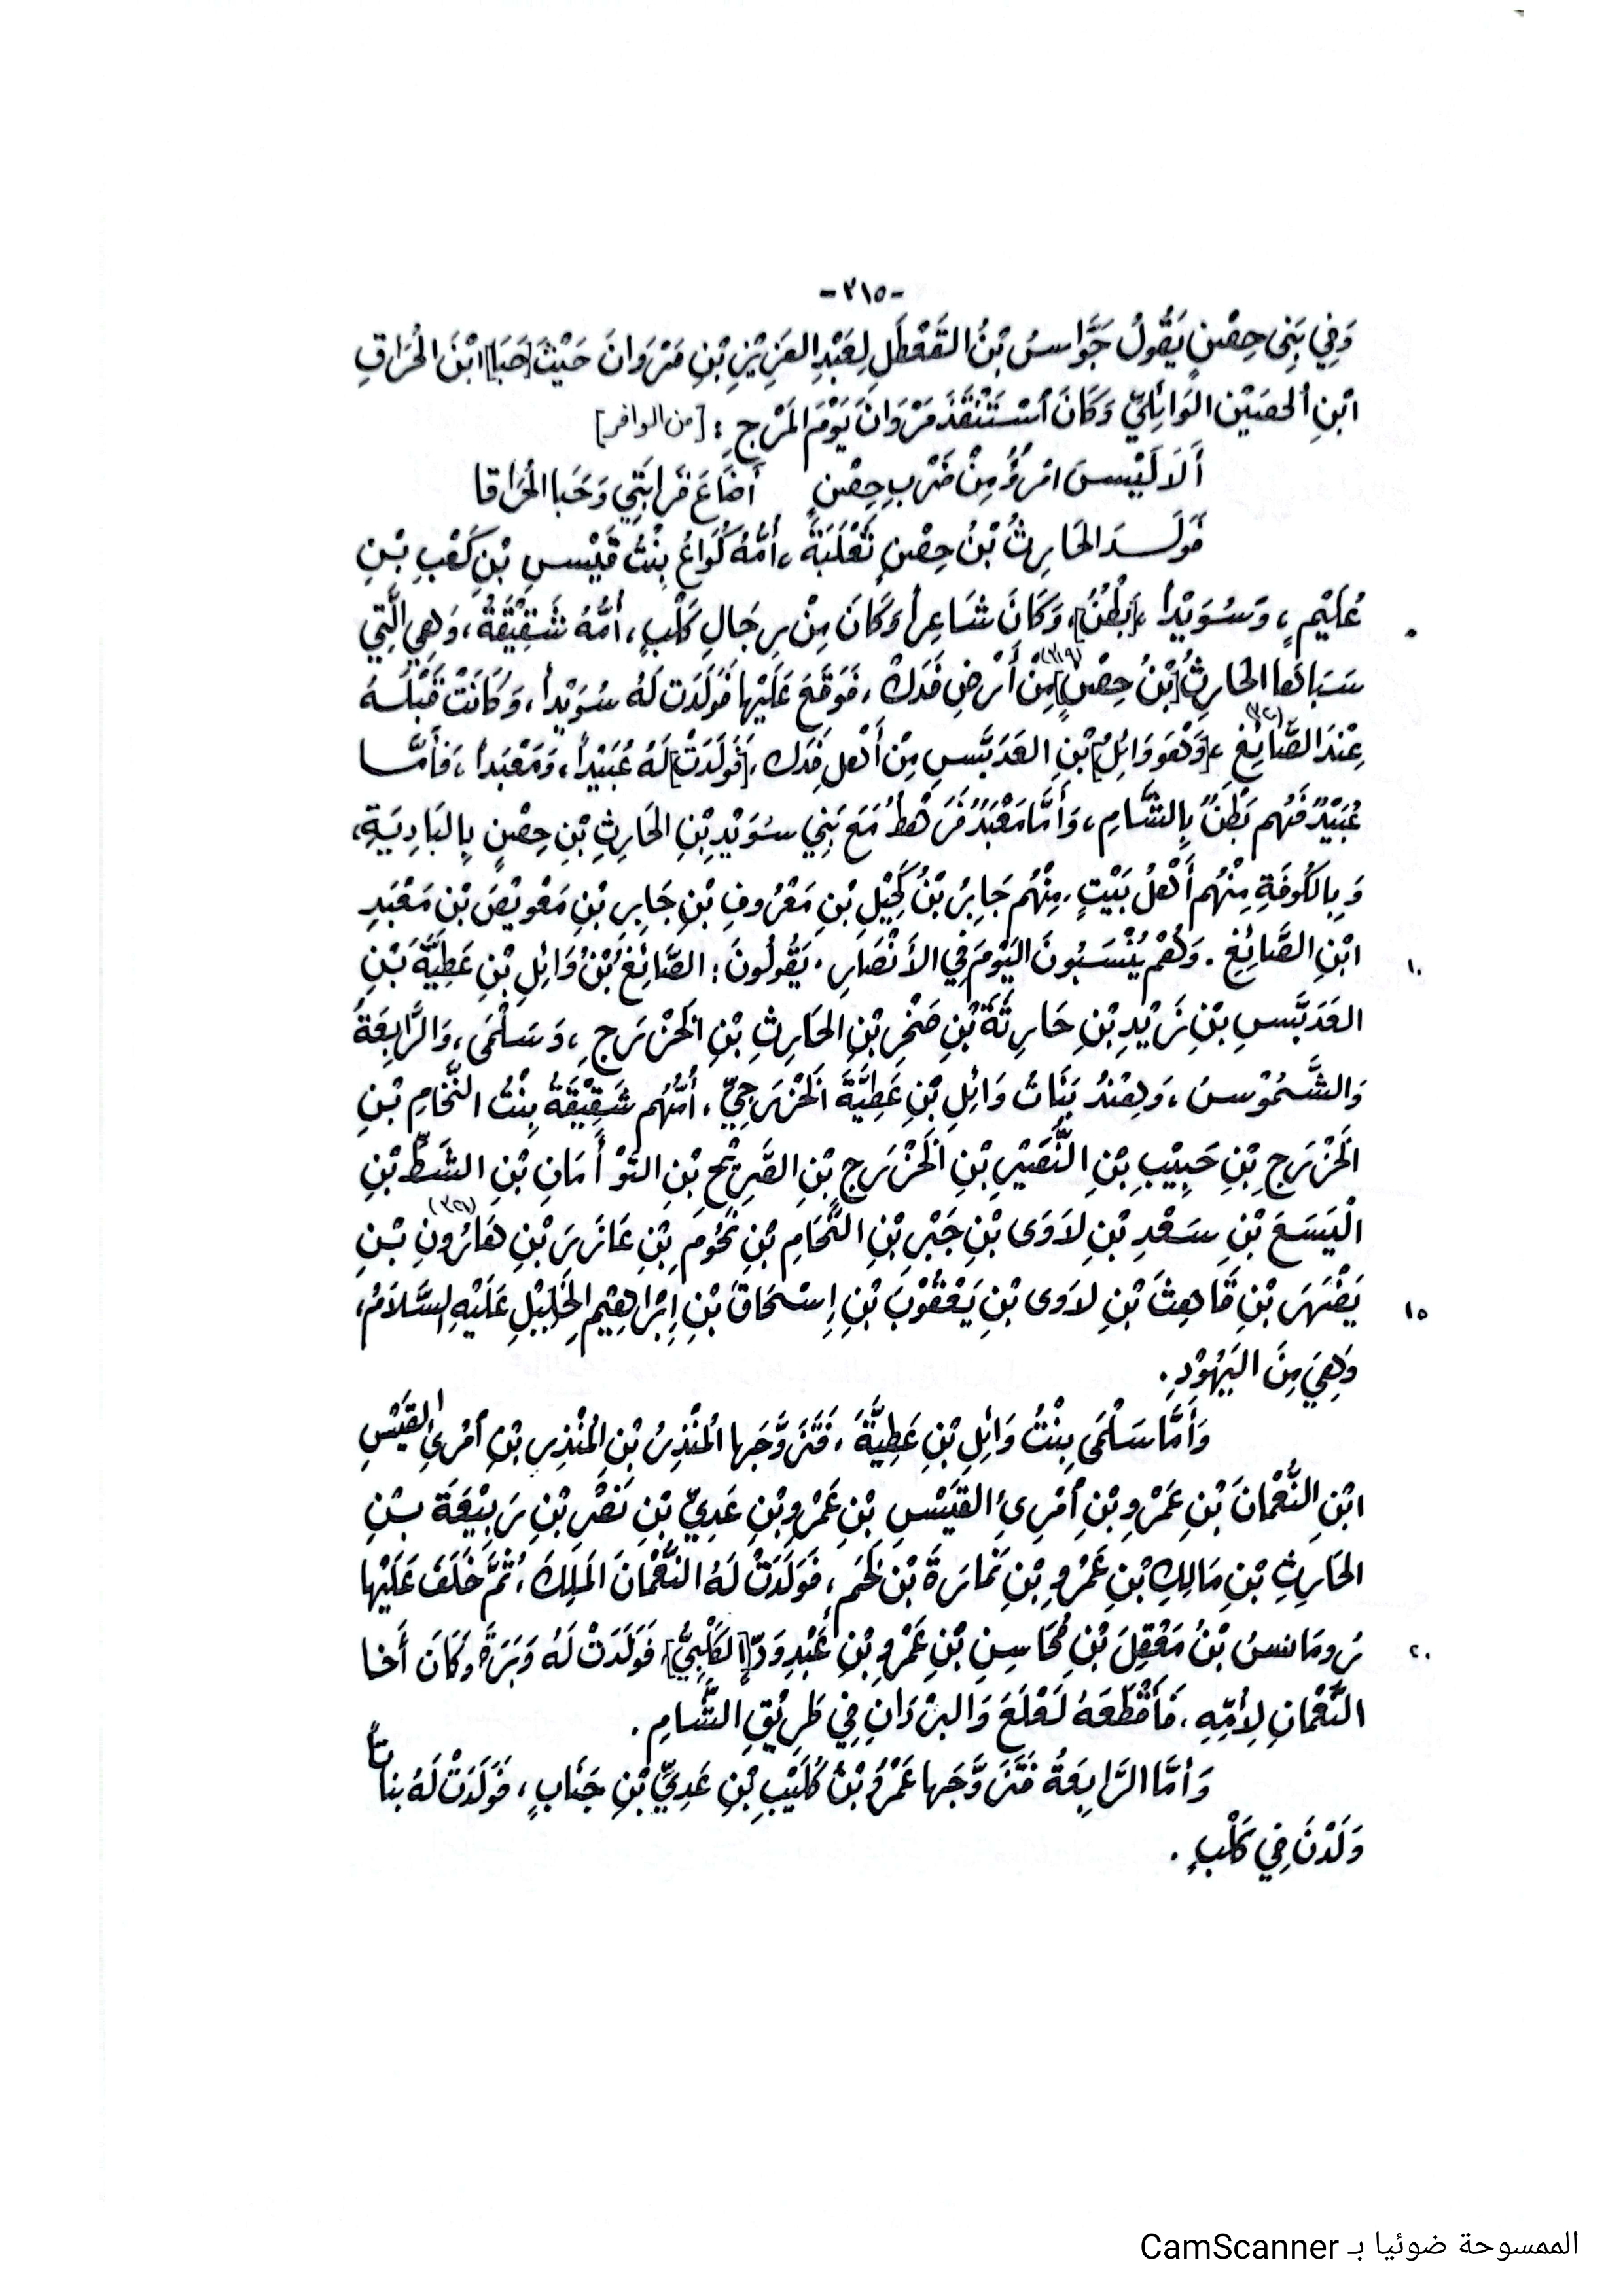 -٣١٥-
وَفِي بَنِي حِصْنٍ يَقُولُ جَوَّاسُ بْنُ القَعْطَلِ لِعَبْدِ العَزِيْزِ بْنِ مَرْوَانَ حَيْثُ [حَبَا] ابْنَ الحُرَاقِ
ابْنِ الحصَيْن الوَائِلِيِّ وَكَانَ اسْتَنْقَذَ مَرْوَانَ يَوْمَ المَرْجِ : [من الوافر]
أَلَا لَيْسَ امْرُؤٌ مِنْ ضَرْبِ حِصْنٍ أَضَاعَ قَرَابَتِي وَحَبا الحُرَاقا
فَوَلَدَ الحَارِثُ بْنُ حِصْنٍ ثَعْلَبَةَ ، أُمُّهُ كُرَاعُ بِنْتُ قَيْسِ بْنِ كَعْبِ بْنِ
عُلَيْمٍ ، وَسُوَيْداً ، [بَطْنٌ] ، وَكَانَ شَاعِراً وَكَانَ مِنْ رِجَالِ كَلْبٍ ، أُمُّهُ شَقِيْقَةُ ، وَهِيَ الَّتِي
٥
سَبَاهَا الحَارِثُ [بْنُ حِصْنٍ] (٣١٩) مِنْ أَرْضِ فَدَكْ ، فَوَقَعَ عَلَيْها فَوَلَدَت لَهُ سُوَيْداً ، وَكَانَتْ قَبْلَهُ
عِنْدَ الصَّائِغِ (٣٢٠) ، [وَهُوَ وَائِلُ] بْنِ العَدَبَّسِ مِنْ أَهْلِ فَدَك ، [فَوَلَدَتْ] لَهُ عُبَيْداً ، وَمَعْبَداً ، فَأَمَّا
عُبَيْدٌ فَهُم بَطْنٌ بِالشَّامِ ، وَأَمَّا مَعْبَدٌ فَرَهْطُهُ مَعَ بَنِي سُوَيْدِ بْنِ الحَارِثِ بْنِ حِصْنٍ بِالبَادِيَةِ ،
وَبِالكُوفَةِ مِنْهُم أَهْلُ بَيْتٍ . مِنْهُم جَابِرُ بْنُ بْنِ مَعْرُوفِ بْنِ جَابِرِ بْنِ بْنِ مَعْبَدِ
ابْنِ الصَّائِغِ . وَهُمْ يُنْسَبُونَ اليَوْمَ فِي الأَنْصَارِ . يَقُولُونَ : الصَّائِغُ بْنُ وَائِلِ بْنِ عَطِيَّةَ بْنِ
١٠
العَدَبَّسِ بْنِ زَيْدِ بْنِ حَارِثَةَ بْنِ صَخْرِ بْنِ الحَارِثِ بْنِ الخَزْرَجِ ، وَسَلْمَى ، وَالرَّابِعَةُ
وَالشَّمُوْسُ ، وَهِنْدُ بَنَاتُ وَائِلِ بْنِ عَطِيَّةَ الخَزْرَجِيِّ ، أُمُّهُم شَقِيْقَةُ بِنْتُ النَّحَّامِ بْنِ
الخَزْرَجِ بْنِ حَبِيْبِ بْنِ النُّضَيْرِ بْنِ الخَزْرَجِ بْنِ الصَّرِيْحِ بْنِ التَّوْأَمَانِ بْنِ السَّبْطِ بْنِ
الْيَسَعَ بْنِ سَعْدِ بْنِ لاَوَى بْنِ جَبْرِ بْنِ النَّحَّامِ بْنِ بْنِ عَازَرَ بْنِ هَارُونِ (٣٢١) بْنِ
يَصْهَرَ بْنِ قَاهِثَ بْنِ لاَوَى بْنِ يَعْقُوْبَ بْنِ إِسْحَاقَ بْنِ إِبْرَاهِيْم الخَلِيْلِ عَلَيْهِ السَّلاَمُ ،
١٥
وَهِيَ مِنَ اليَهُوْدِ .
وَأَمَّا سَلْمَى بِنْتُ وَائِلِ بْنِ عَطِيَّةَ ، فَتَزَوَّجَها المُنْذِرُ بْنِ المُنْذِرِ بْنِ أمْرِئِ القَيْسِ
ابْنِ النُّعْمَانَ بْنِ عَمْرِو بْنِ أمْرِئِ القَيْسِ بْنِ عَمْرِو بْنِ عَدِيِّ بْنِ نَصْرِ بْنِ رَبِيْعَةَ بْنِ
الحَارِثِ بْنِ مَالِكِ بْنِ عَمْرِو بْنِ نَمارَةَ بْنِ لَخْمٍ ، فَوَلَدَتْ لَهُ النُّعْمَانَ المَلِكَ ، ثُمَّ خَلَفَ عَلَيْها
رُومَانِسُ بْنُ مَعْقِلَ بْنِ مُحَاسِنِ بْنِ عَمْرِو بْنِ عَبْدِ وَدٍّ [الكَلْبِيُّ] ، فَوَلَدَتْ لَهُ وَبَرَةَ وَكَانَ أَخَا
٢٠
النُّعْمَانِ لِأُمِّهِ ، فَأَقْطَعَهُ لَعْلَعَ وَالبرَدَانِ فِي طَرِيْقِ الشَّامِ .
وَأمَّا الرَّابِعَةُ فَتَزَوَّجَها عَمْرُو بْنُ كُلَيْبِ بْنِ عَدِيِّ بْنِ جَنَابٍ ، فَوَلَدَتْ لَهُ بناتاً
وَلَدْنَ فِي كَلْبٍ .
الممسوحة ضوئيا بـ CamScanner